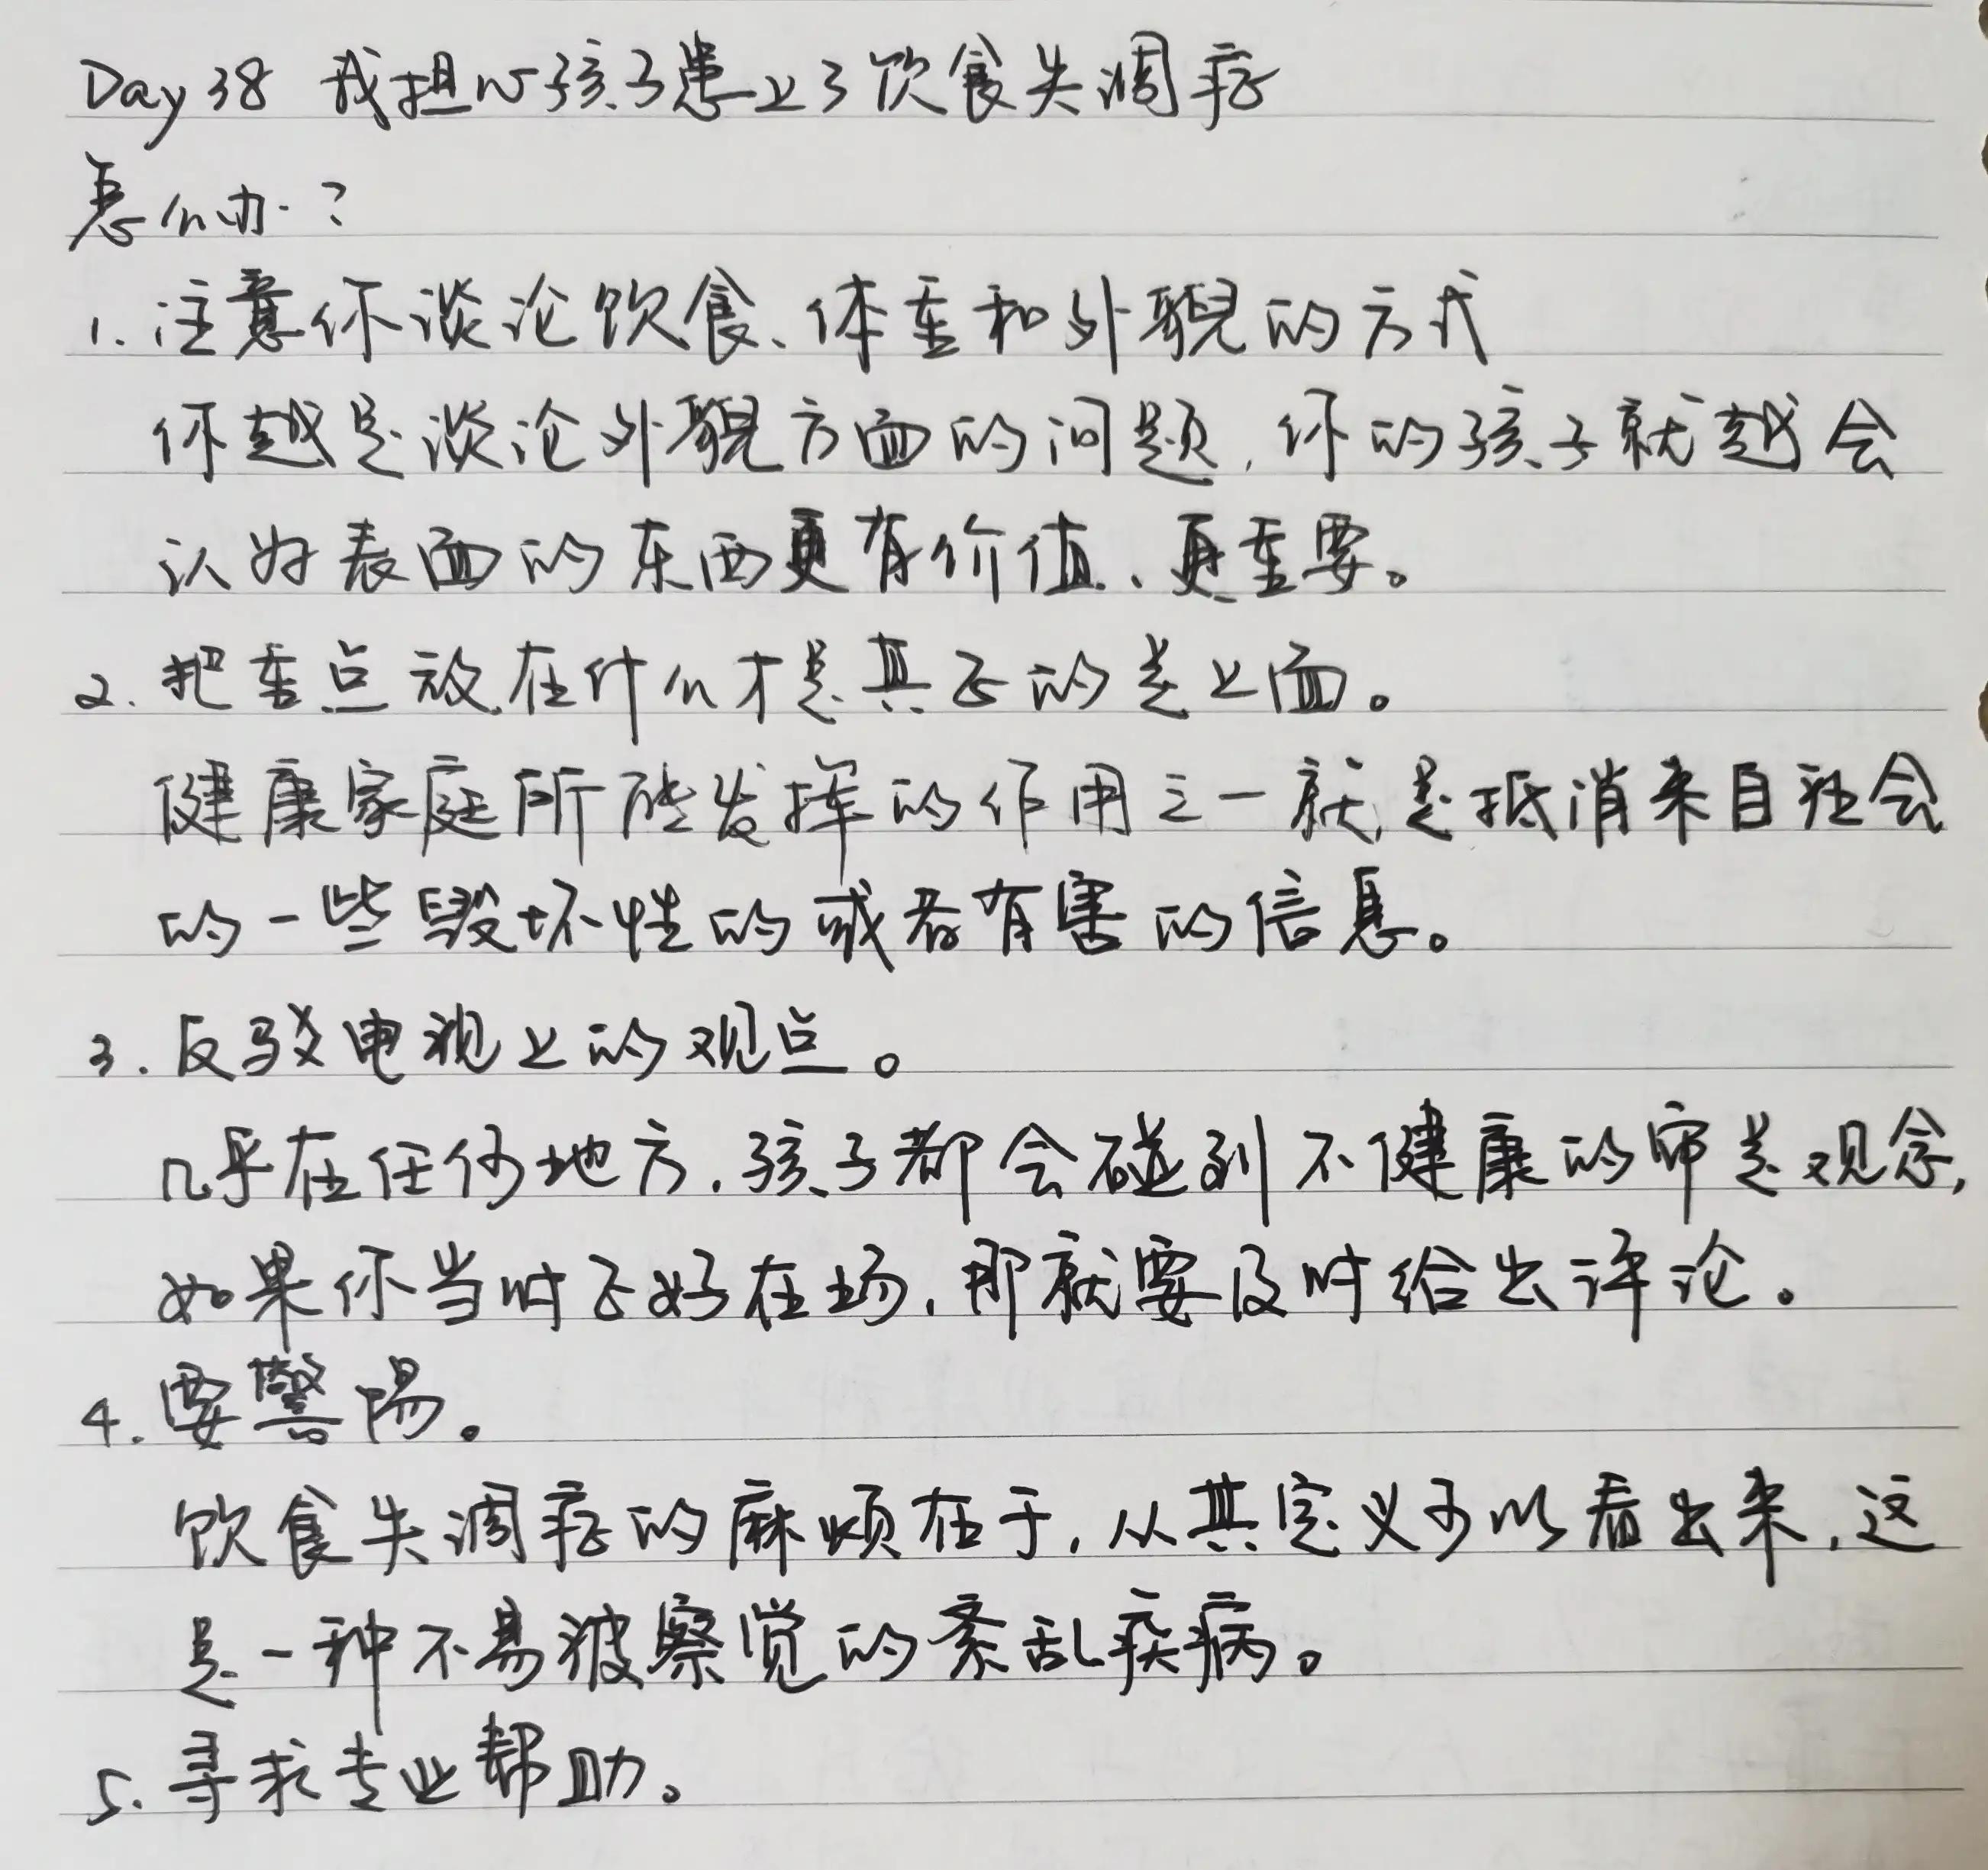 Day 38 我担心孩子患上了饮食失调症
怎么办?
1. 注意你谈论饮食、体重和外貌的方式
你越是谈论外貌方面的问题,你的孩子就越会
认为表面的东西更有价值、更重要。
2. 把重点放在什么才是真正的美上面。
健康家庭所能发挥的作用之一就是抵消来自社会
的一些毁坏性的或者有害的信息。
3. 反驳电视上的观点。
几乎在任何地方,孩子都会碰到不健康的审美观念,
如果你当时正好在场,那就要及时给出评论。
4. 要警惕。
饮食失调症的麻烦在于,从其定义可以看出来,这
是一种不易被察觉的紊乱疾病。
5. 寻求专业帮助。